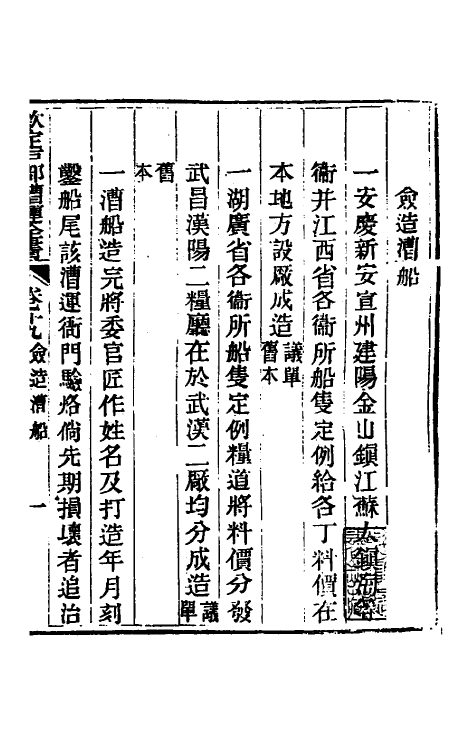 僉造漕船
一安慶新安宣州建陽金山鎮江蘇太鎮海等
衞幷江西省各衞所船隻定例給各丁料價在
本地方設厰成造議單舊本
一湖廣省各衞所船隻定例糧道將料價分發
武昌漢陽二糧廳在於武漢二厰均分成造議單
舊本
一漕船造完將委官匠作姓名及打造年月刻
鑿船尾該漕運衙門驗烙倘先期損壞者追治
欽定戶部漕運全書 卷十九僉造漕船 一